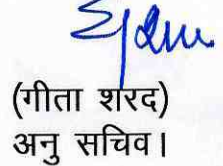 (गीता शरद)
अनु सचिव।